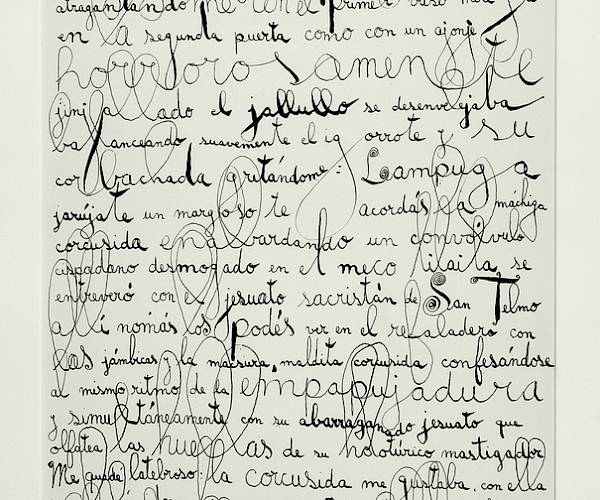 atragantando me con el primer vaso
en la segunda puerta como con un ajonje
horrorosamente
jinjallado el jallullo se desenvelejaba
balanceando suavemente el ig orrote y su
corbachada gritándome: Lampuga
jarújate un margoso te acordás la máchiga
corcusida enalbardando un convólvulo
cispadano desmogado en el meco lilaila, se
entreveró con el jesuato sacristán de San Telmo
allí nomás los podés ver en el resaladero con
las jámbicas y la maesura, maldita corcusida confesándose
al mismo ritmo de la empapujadura
y simultáneamente con su abarraganado jesuato que
olfatea las huellas de su holotúrico mastigador
Me quedé latebroso: la corcusida me gustaba, con ella